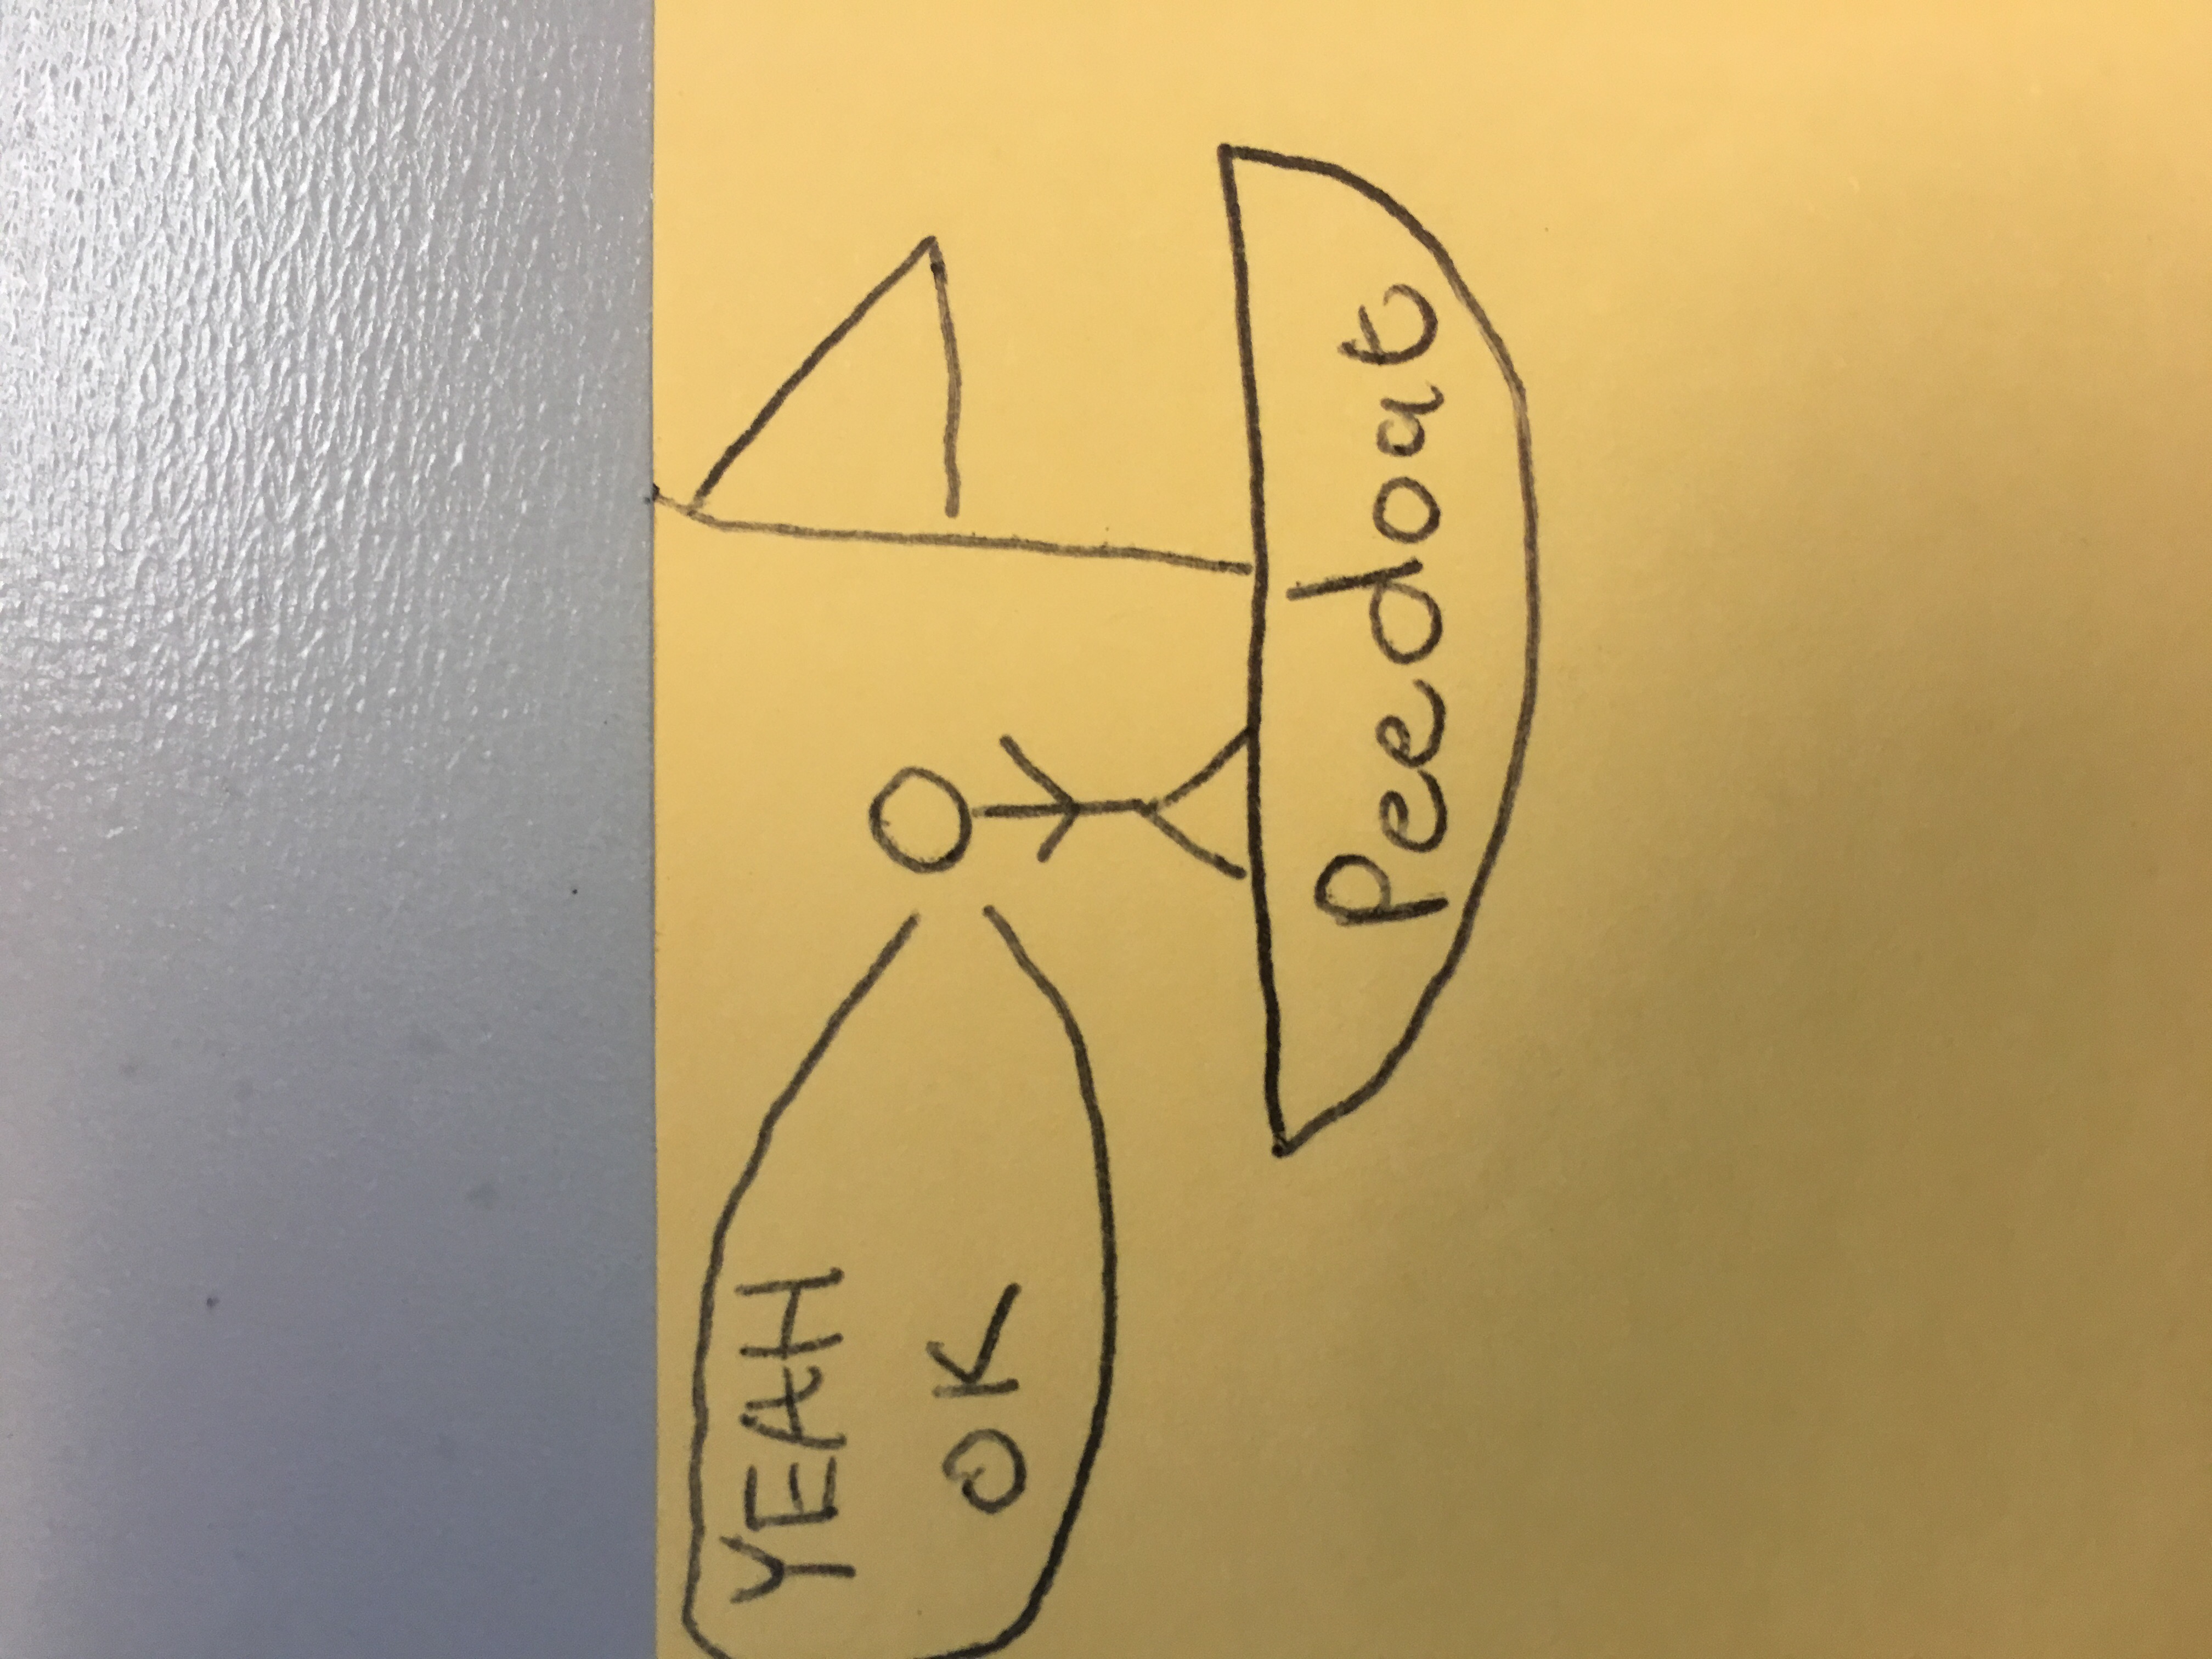 YEAH
OK
Peedoat